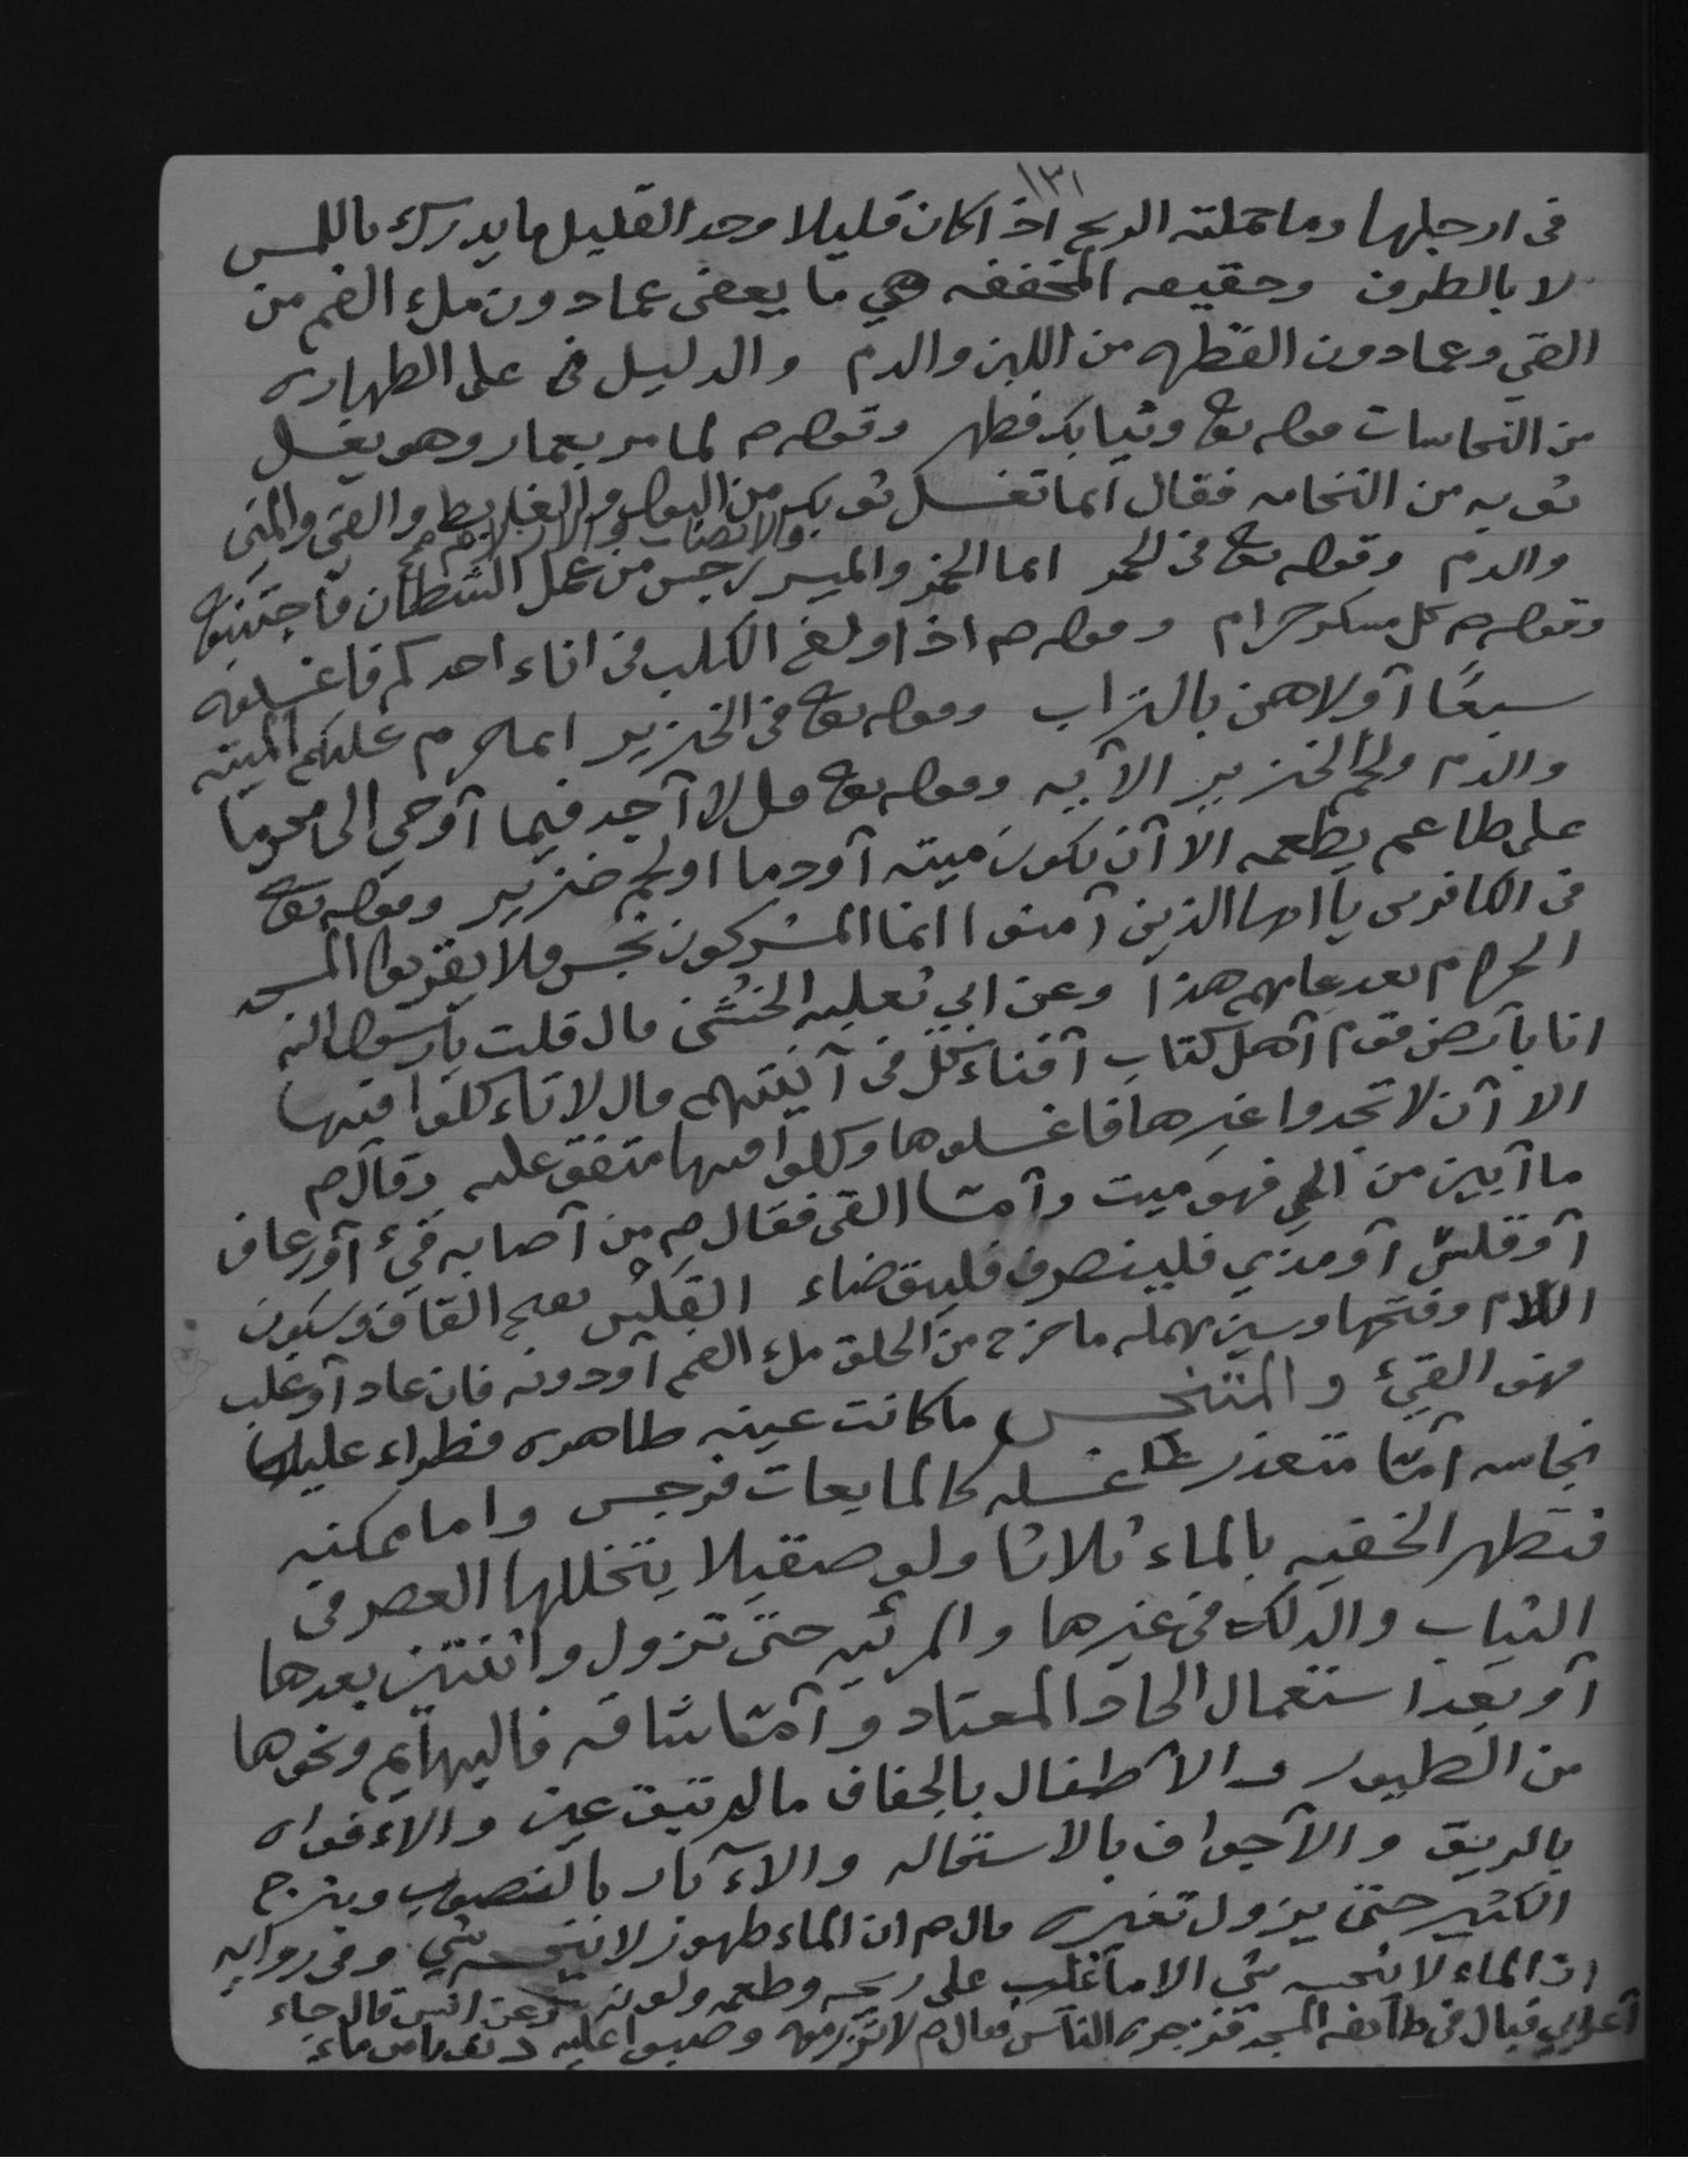 ١٣١
فى ارجلها وما حملته الريح اذا كان قليلا وحد القليل ما يدرك باللمس
لا بالطرف وحقيقه المخففه هي ما يعفى عما دون ملء الفم من
القي وعما دون القطره من اللبن والدم والدليل على الطهاره
من النجاسات قوله تع وثيابك فطهر وقوله صم لما مر بعمار وهو يغسل
ثوبه من النخامه فقال انما تغسل ثوبك من البول والغايط والقي والمني
والدم وقوله تع فى الخمر انما الخمر والميسر والانصاب والازلام رجس من عمل الشيطان فاجتنبوه
وقوله صم كل مسكر حرام وقوله صم اذا ولغ الكلب فى اناء احدكم فاغسلوه
سبعًا آولاهن بالتراب وقوله تع فى الخنزير انما حرم عليكم الميته
والدم ولحم الخنزير الآيه وقوله تع قل لا آجد فيما آوحي الى محرما
على طاعم يطعمه الا آن يكون ميته آو دما او لحم خنزير وقوله تع
فى الكافرين يا ايها الذين آمنوا انما المشركون نجس فلا يقربوا المسجد
الحرام بعد عامهم هذا وعن ابي ثعلبه الخشني قال قلت يارسول الله
انا بآرض قوم آهل كتاب آفناءكل فى آنيتهم قال لا تاءكلوا فيها
الا آن لا تجدوا غيرها فاغسلوها وكلوا فيها متفق عليه وقال صم
ما آبين من الحي فهو ميت وآمّا القى فقال صم من آصابه قيء آو رعاف
آو قلس آو مذي فلينصرف فليتوضاء القلس بفتح القاف وسكون
اللام وفتحها وسين مهمله ما خرج من الحلق ملء الفم آو دونه فان عاد آو غلب
فهو القيء والمتنجس ما كانت عينه طاهره فطراء عليها
نجاسه آمّا متعذر غسله كالمايعات فرجس واما ممكنه
فتطهر الخفيه بالماء ثلاثا ولو صقيلا يتخللها العصر فى
الثياب والدلك فى غيرها والمرئيه حتى تزول واثنتين بعدها
آو بعد استعمال الحاد المعتاد وآمّا شاقه فالبهآيم ونحوها
من الطيور والاطفال بالجفاف مالم تبق عين والاءفواه
بالريق والآجواف بالاستحاله والاءآبار بالنضوب وبنزح
الكثير حتى يزول تغيره قال صم ان الماء طهور لا ينجسه شي وفى روايه
ان الماء لا ينجسه شي الا ما غلب على ريحه وطعمه ولونه وعن انس قال جاء
آعرابي فبال فى طآئفه المسجد فزجره الناس فقال صم لا تزرموه وصبوا عليه دلوا من ماء